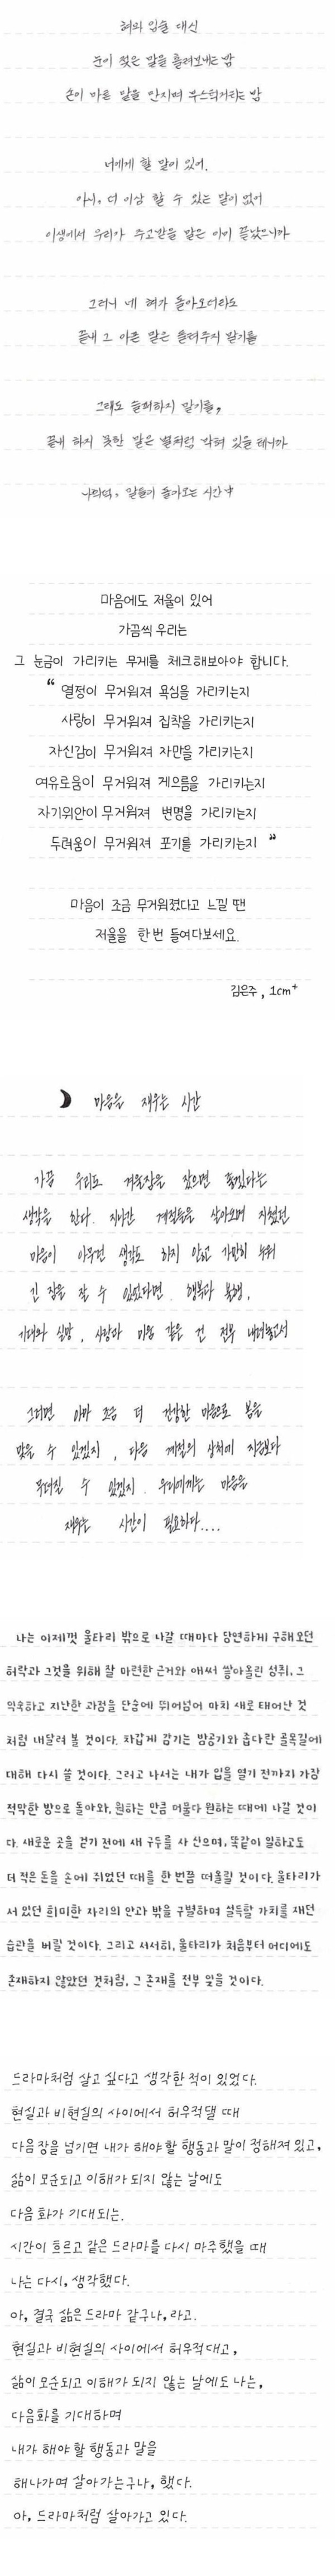 혀와 입술 대신
눈이 젖은 말을 흘려보내는 밤
손이 마른 말을 만지며 부스럭거리는 밤
너에게 할 말이 있어.
아니, 더 이상 할 수 있는 말이 없어
이생에서 우리가 주고받을 말은 이미 끝났으니까
그러니 네 혀가 돌아오더라도
끝내 그 아픈 말은 들려주지 말기를
그래도 슬퍼하지 말기를,
끝내 하지 못한 말은 별처럼 박혀 있을 테니까
나희덕, 말들이 돌아오는 시간 中
마음에도 저울이 있어
가끔씩 우리는
그 눈금이 가리키는 무게를 체크해보아야 합니다.
“ 열정이 무거워져 욕심을 가리키는지
사랑이 무거워져 집착을 가리키는지
자신감이 무거워져 자만을 가리키는지
여유로움이 무거워져 게으름을 가리키는지
자기위안이 무거워져 변명을 가리키는지
두려움이 무거워져 포기를 가리키는지 ”
마음이 조금 무거워졌다고 느낄 땐
저울을 한번 들여다보세요.
김은주, 1cm+
마음을 재우는 시간
가끔 우리도 겨울잠을 잤으면 좋겠다는
생각을 한다. 지나간 계절들을 살아오며 지쳤던
마음이 아무런 생각도 하지 않고 가만히 누워
긴 잠을 잘 수 있었다면. 행복과 불행,
기대와 실망, 사랑과 미움 같은 건 전부 내려놓고서
그러면 아마 조금 더 건강한 마음으로 봄을
맞을 수 있겠지, 다음 계절의 상처에 지금보다
무뎌질 수 있겠지. 우리에게는 마음을
재우는 시간이 필요하다....
나는 이제껏 울타리 밖으로 나갈 때마다 당연하게 구해오던
허락과 그것을 위해 잘 마련한 근거와 애써 쌓아올린 성취, 그
익숙하고 지난한 과정을 단숨에 뛰어넘어 마치 새로 태어난 것
처럼 내달려 볼 것이다. 차갑게 감기는 밤공기와 좁다란 골목길에
대해 다시 쓸 것이다. 그러고 나서는 내가 입을 열기 전까지 가장
적막한 방으로 돌아와, 원하는 만큼 머물다 원하는 때에 나갈 것이
다. 새로운 곳을 걷기 전에 새 구두를 사 신으며, 똑같이 일하고도
더 적은 돈을 손에 쥐었던 때를 한 번쯤 떠올릴 것이다. 울타리가
서 있던 희미한 자리의 안과 밖을 구별하며 설득할 가치를 재던
습관을 버릴 것이다. 그리고 서서히, 울타리가 처음부터 어디에도
존재하지 않았던 것처럼, 그 존재를 전부 잊을 것이다.
드라마처럼 살고 싶다고 생각한 적이 있었다.
현실과 비현실의 사이에서 허우적댈 때
다음 장을 넘기면 내가 해야 할 행동과 말이 정해져 있고,
삶이 모순되고 이해가 되지 않는 날에도
다음 화가 기대되는.
시간이 흐르고 같은 드라마를 다시 마주했을 때
나는 다시, 생각했다.
아, 결국 삶은 드라마 같구나, 라고.
현실과 비현실의 사이에서 허우적대고,
삶이 모순되고 이해가 되지 않는 날에도 나는,
다음화를 기대하며
내가 해야 할 행동과 말을
해나가며 살아가는구나, 했다.
아, 드라마처럼 살아가고 있다.